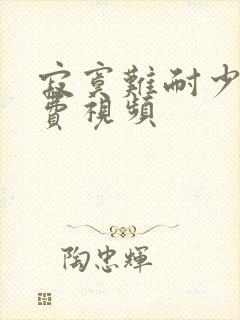 寂寞難耐少
費視頻
陶忠輝